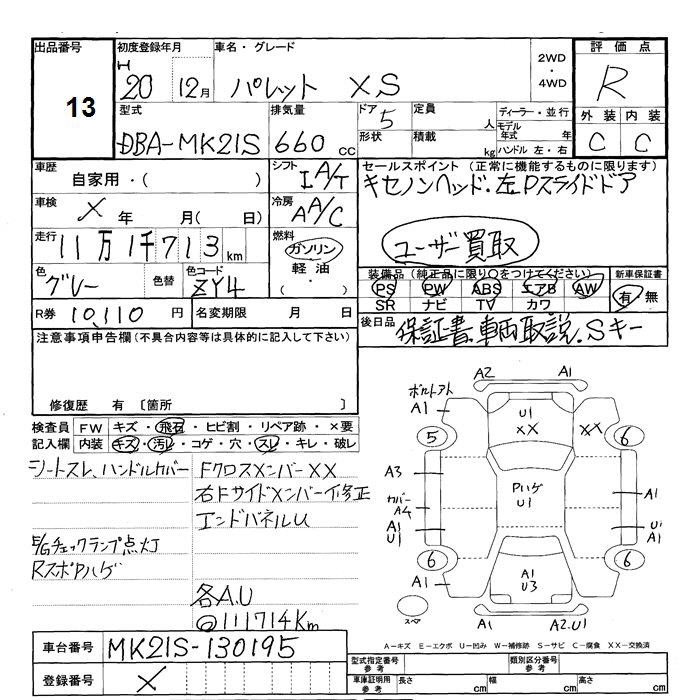 出品番号
13
初度登録年月
H
20 12月
車名・グレード
パレット XS
2WD
・
4WD
評価点
R
外装 内装
C C
型式
DBA-MK21S
排気量
660 cc
ドア
5
形状
定員
人
積載
kg
ディーラー・並行
モデル年式 年
ハンドル 左・右
車歴
自家用・( )
シフト
I A/T
車検
× 年 月( 日)
冷房
A A/C
走行
11万1千713km
燃料
ガソリン
軽油
( ・ )
色
グレー
色替
色コード
ZY4
R券 10,110 円
名変期限 月 日
セールスポイント (正常に機能するものに限ります)
キセノンヘッド・左Pスライドドア
ユーザー買取
装備品(純正品に限り○をつけてください)
PS PW ABS エアB AW
SR ナビ TV カワ
新車保証書
有・無
後日品
保証書.車両取説.Sキー
注意事項申告欄(不具合内容等は具体的に記入して下さい)
修復歴 有 〔箇所 〕
検査員記入欄
FW キズ・飛石・ヒビ割・リペア跡・×要
内装 キズ・汚レ・コゲ・穴・スレ・キレ・破レ
シートスレ、ハンドルカバー
E/Gチェックランプ点灯
RスポPハゲ
FクロスメンバーXX
右Fサイドメンバー修正
エンドパネルU
各A.U
@111714Km
ボルトアト
A1
A2 A1
U1
XX
XX
5 6
A3
カバー
A4
A1
U1
Pハゲ
U1
A1
U1
A1
6 6
A1
A1
U3
スペア
A1 A2.U1
A-キズ E-エクボ U-凹み W-補修跡 S-サビ C-腐食 XX-交換済
車台番号
MK21S-130195
登録番号
×
型式指定番号
参考
類別区分番号
参考
車庫証明用
参考
長さ cm
幅 cm
高さ cm